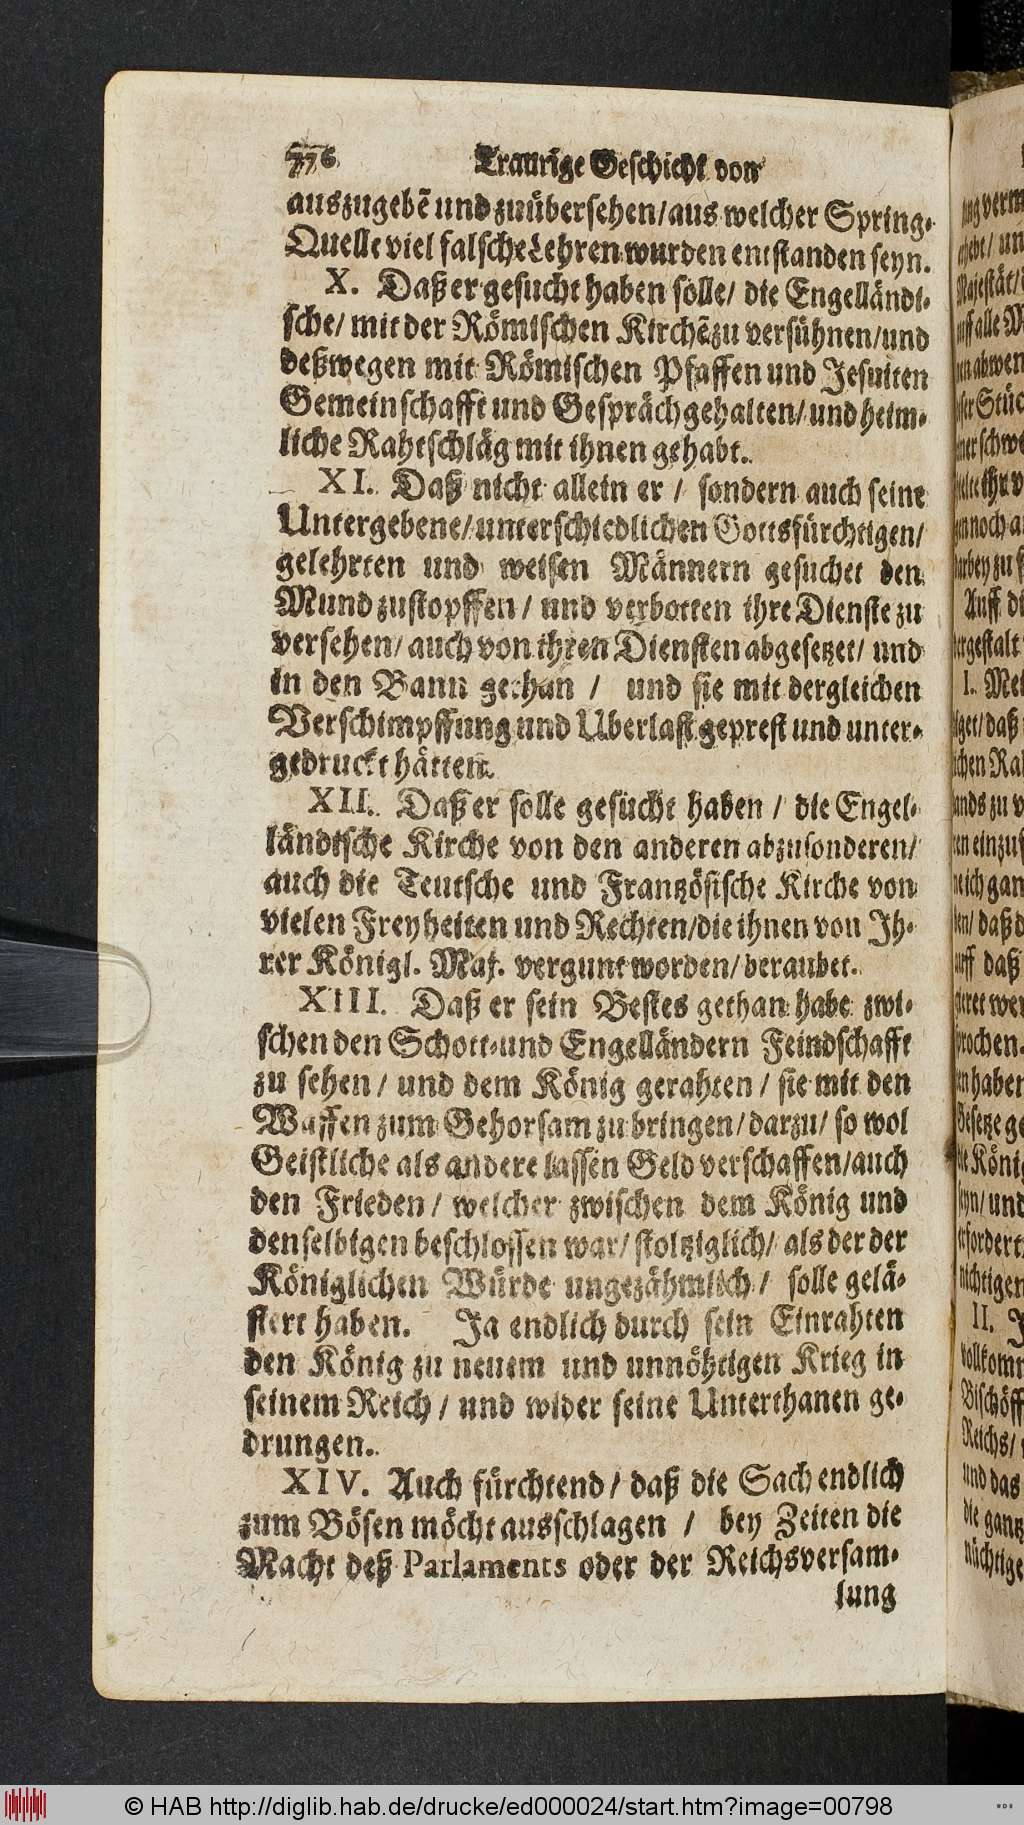 776 Traurige Geschicht von
auszugebẽ und zuübersehen/aus welcher Spring-
Quelle viel falsche Lehren wurden entstanden seyn.
X. Daß er gesucht haben solle/ die Engelländi-
sche/ mit der Römischen Kirchẽ zu versühnen/und
deßwegen mit Römischen Pfaffen und Jesuiten
Gemeinschafft und Gespräch gehalten/ und heim-
liche Rahtschläg mit ihnen gehabt.
XI. Daß nicht allein er / sondern auch seine
Untergebene/ unterschiedlichen Gottsfürchtigen/
gelehrten und weisen Männern gesuchet den
Mund zustopffen / und verbotten ihre Dienste zu
versehen/ auch von ihren Diensten abgesetzet/ und
in den Bann gethan / und sie mit dergleichen
Verschimpffung und Uberlast geprest und unter-
gedruckt hätten.
XII. Daß er solle gesucht haben / die Engel-
ländische Kirche von den anderen abzusonderen/
auch die Teutsche und Frantzösische Kirche von
vielen Freyheiten und Rechten/die ihnen von Ih-
rer Königl. Maj. vergunt worden/ beraubet.
XIII. Daß er sein Bestes gethan habe zwi-
schen den Schott-und Engelländern Feindschafft
zu sehen / und dem König gerahten / sie mit den
Waffen zum Gehorsam zu bringen/ darzu/ so wol
Geistliche als andere lassen Geld verschaffen/auch
den Frieden / welcher zwischen dem König und
denselbigen beschlossen war/ stoltziglich/ als der der
Königlichen Würde ungezähmlich / solle gelä-
stert haben. Ja endlich durch sein Einrahten
den König zu neuem und unnöhtigen Krieg in
seinem Reich / und wider seine Unterthanen ge-
drungen.
XIV. Auch fürchtend / daß die Sach endlich
zum Bösen möcht ausschlagen / bey Zeiten die
Macht deß Parlaments oder der Reichsversam-
lung
© HAB http://diglib.hab.de/drucke/ed000024/start.htm?image=00798